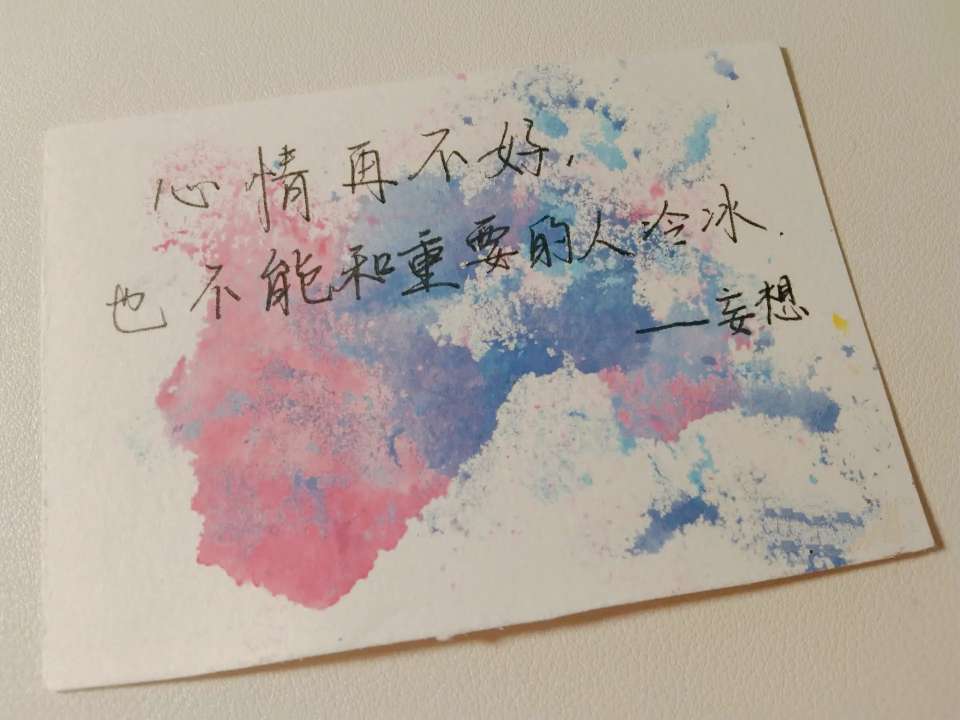 心情再不好，
也不能和重要的人冷冰.
——妄想